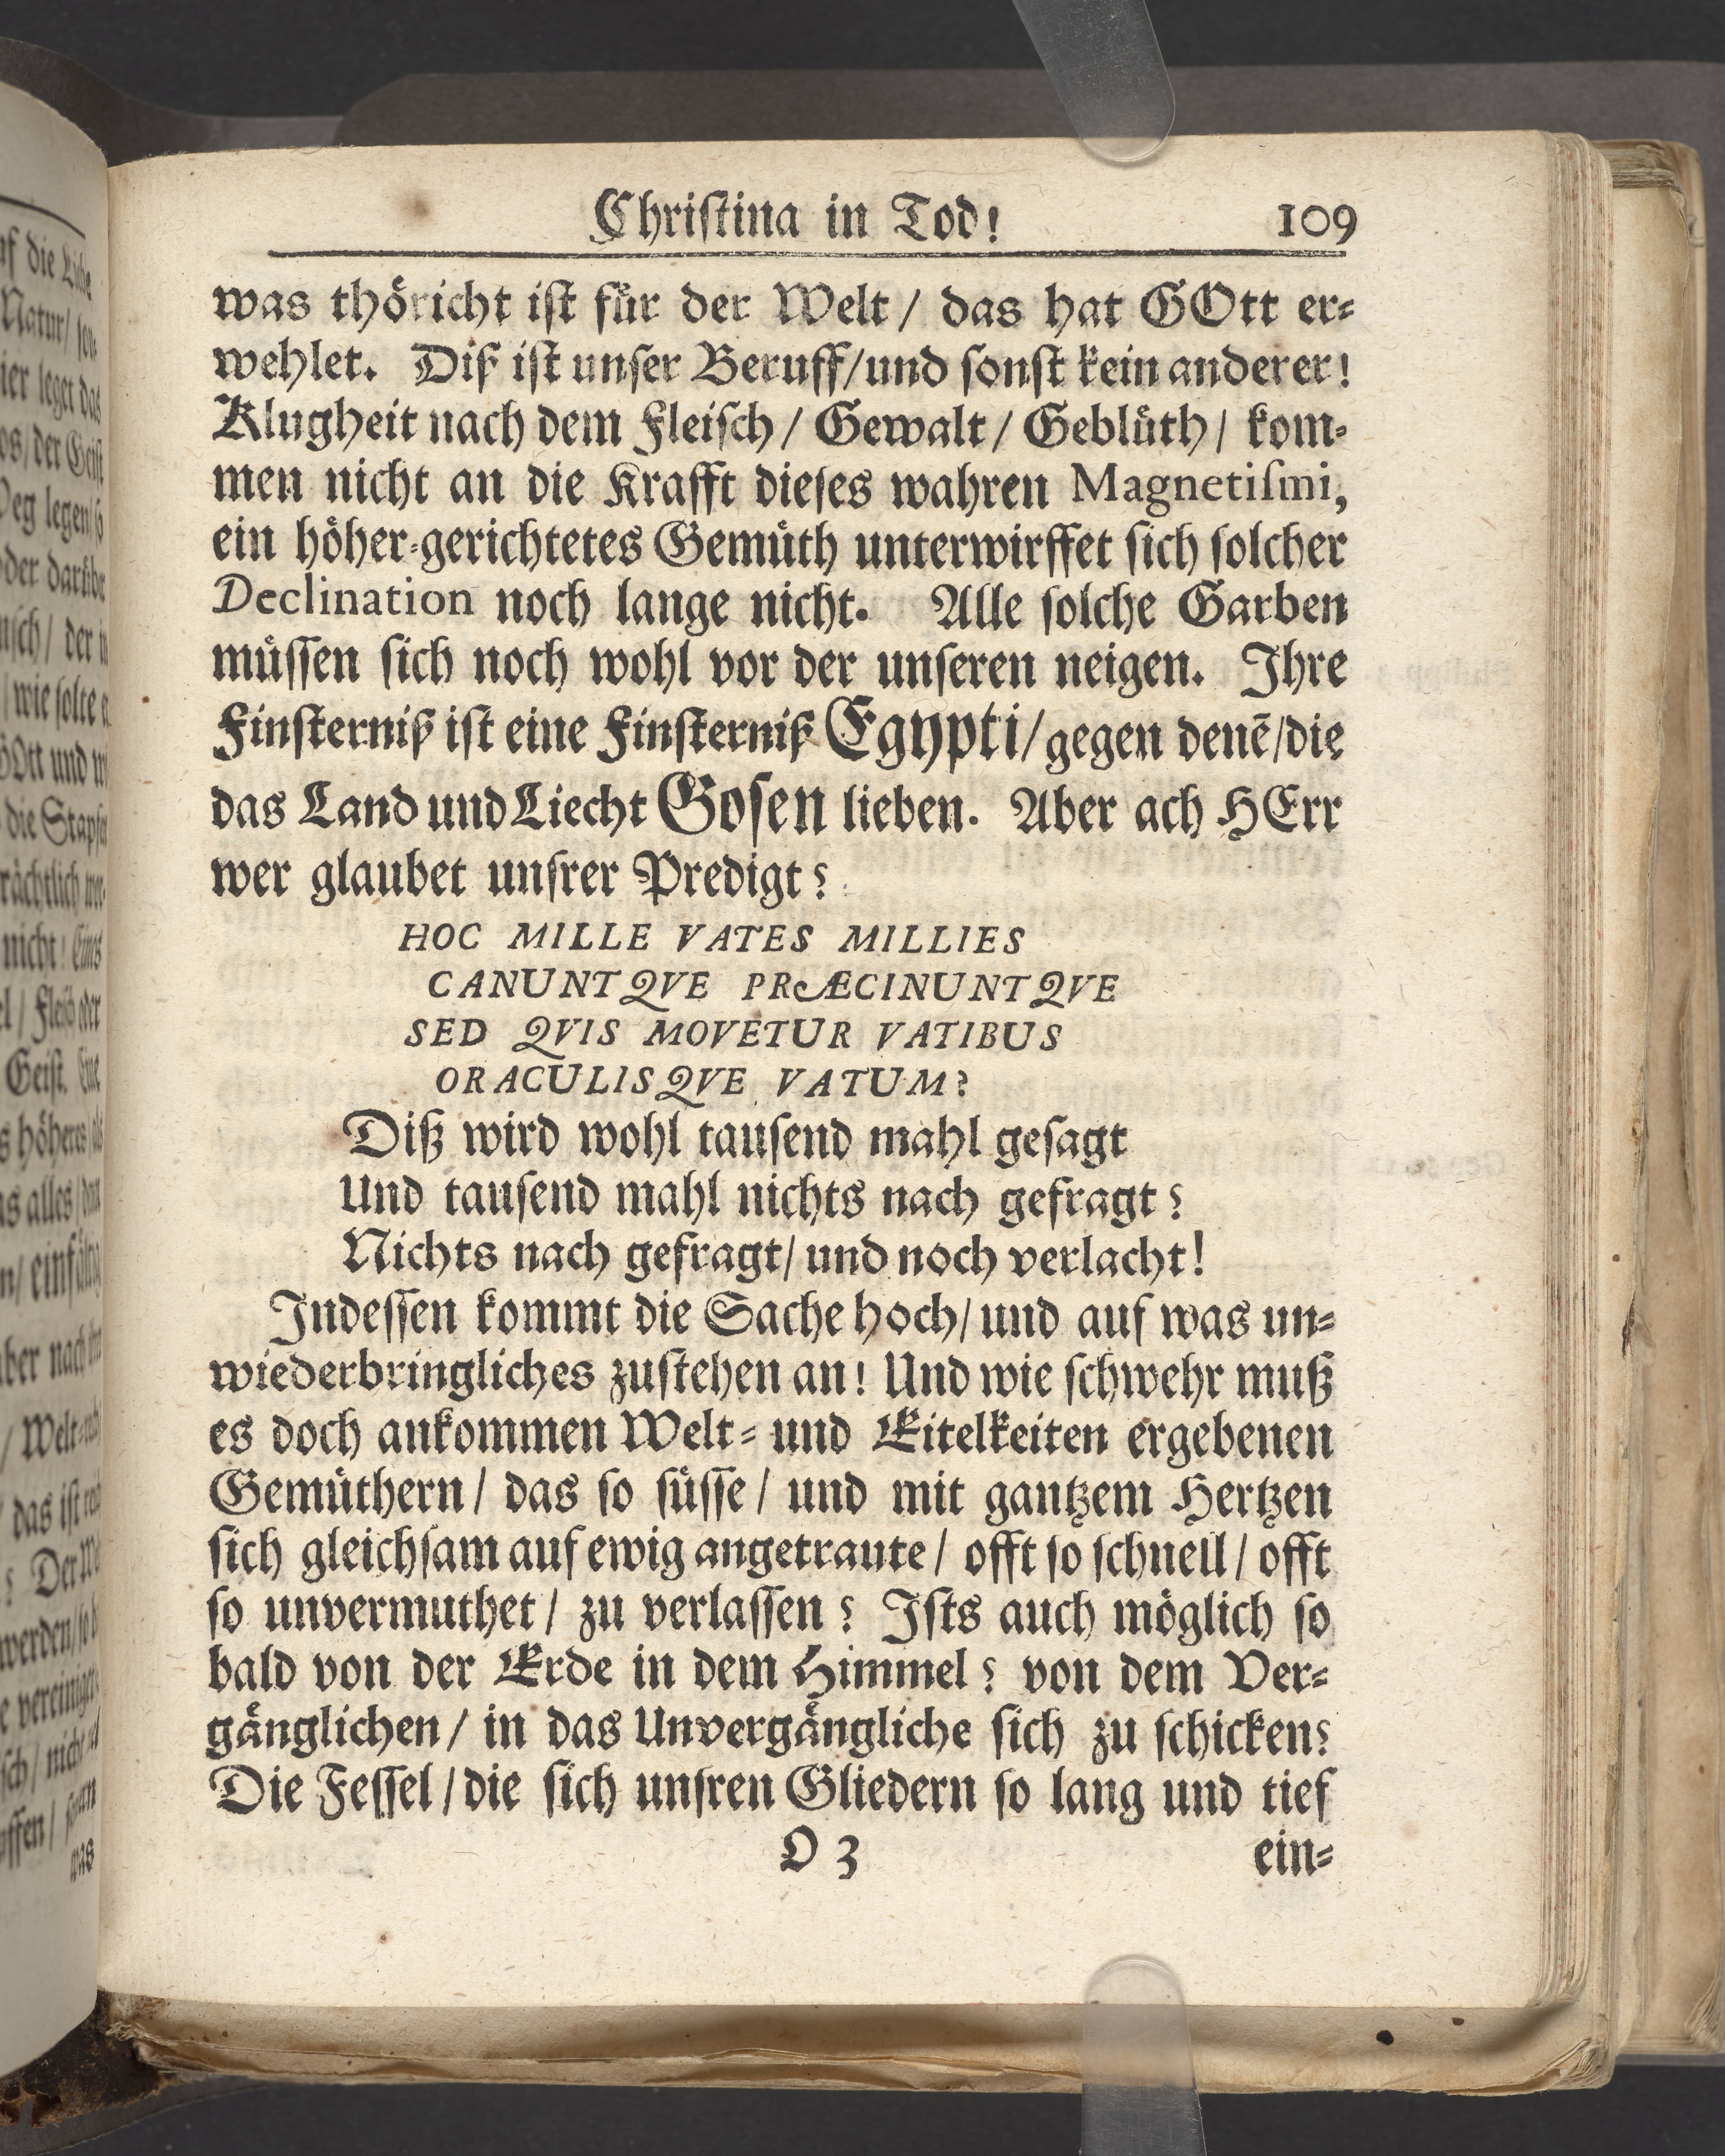 Christina in Tod! 109
was thöricht ist für der Welt / das hat GOtt er-
wehlet. Diß ist unser Beruff/und sonst kein anderer!
Klugheit nach dem Fleisch / Gewalt / Geblüth / kom-
men nicht an die Krafft dieses wahren Magnetismi,
ein höher-gerichtetes Gemüth unterwirffet sich solcher
Declination noch lange nicht. Alle solche Garben
müssen sich noch wohl vor der unseren neigen. Ihre
Finsterniß ist eine Finsterniß Egypti / gegen denē/die
das Land und Liecht Gosen lieben. Aber ach HErr
wer glaubet unsrer Predigt?
HOC MILLE VATES MILLIES
CANUNTQVE PRÆCINUNTQVE
SED QVIS MOVETUR VATIBUS
ORACULISQVE VATUM?
Diß wird wohl tausend mahl gesagt
Und tausend mahl nichts nach gefragt?
Nichts nach gefragt/ und noch verlacht!
Indessen kommt die Sache hoch/ und auf was un-
wiederbringliches zustehen an! Und wie schwehr muß
es doch ankommen Welt- und Eitelkeiten ergebenen
Gemüthern / das so süsse / und mit gantzem Hertzen
sich gleichsam auf ewig angetraute / offt so schnell / offt
so unvermuthet / zu verlassen? Ists auch möglich so
bald von der Erde in dem Himmel? von dem Ver-
gänglichen / in das Unvergängliche sich zu schicken?
Die Fessel / die sich unsren Gliedern so lang und tief
O 3 ein-